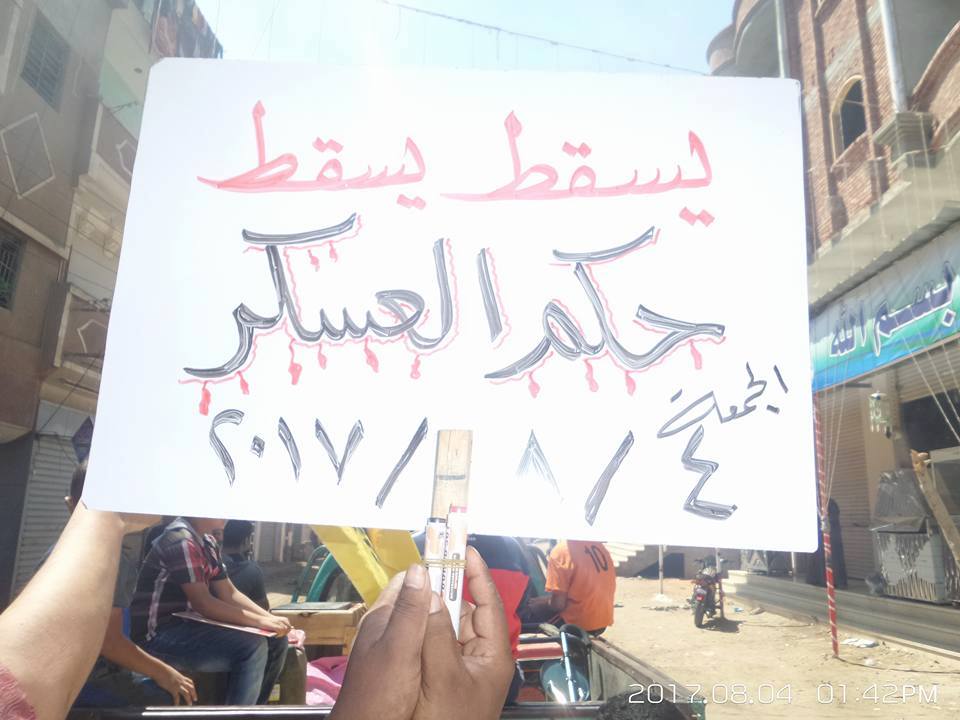 يسقط يسقط
حكم العسكر
الجمعة
٤ / ٨ / ٢٠١٧
بسم الله
10
2017.08.04 01:42PM